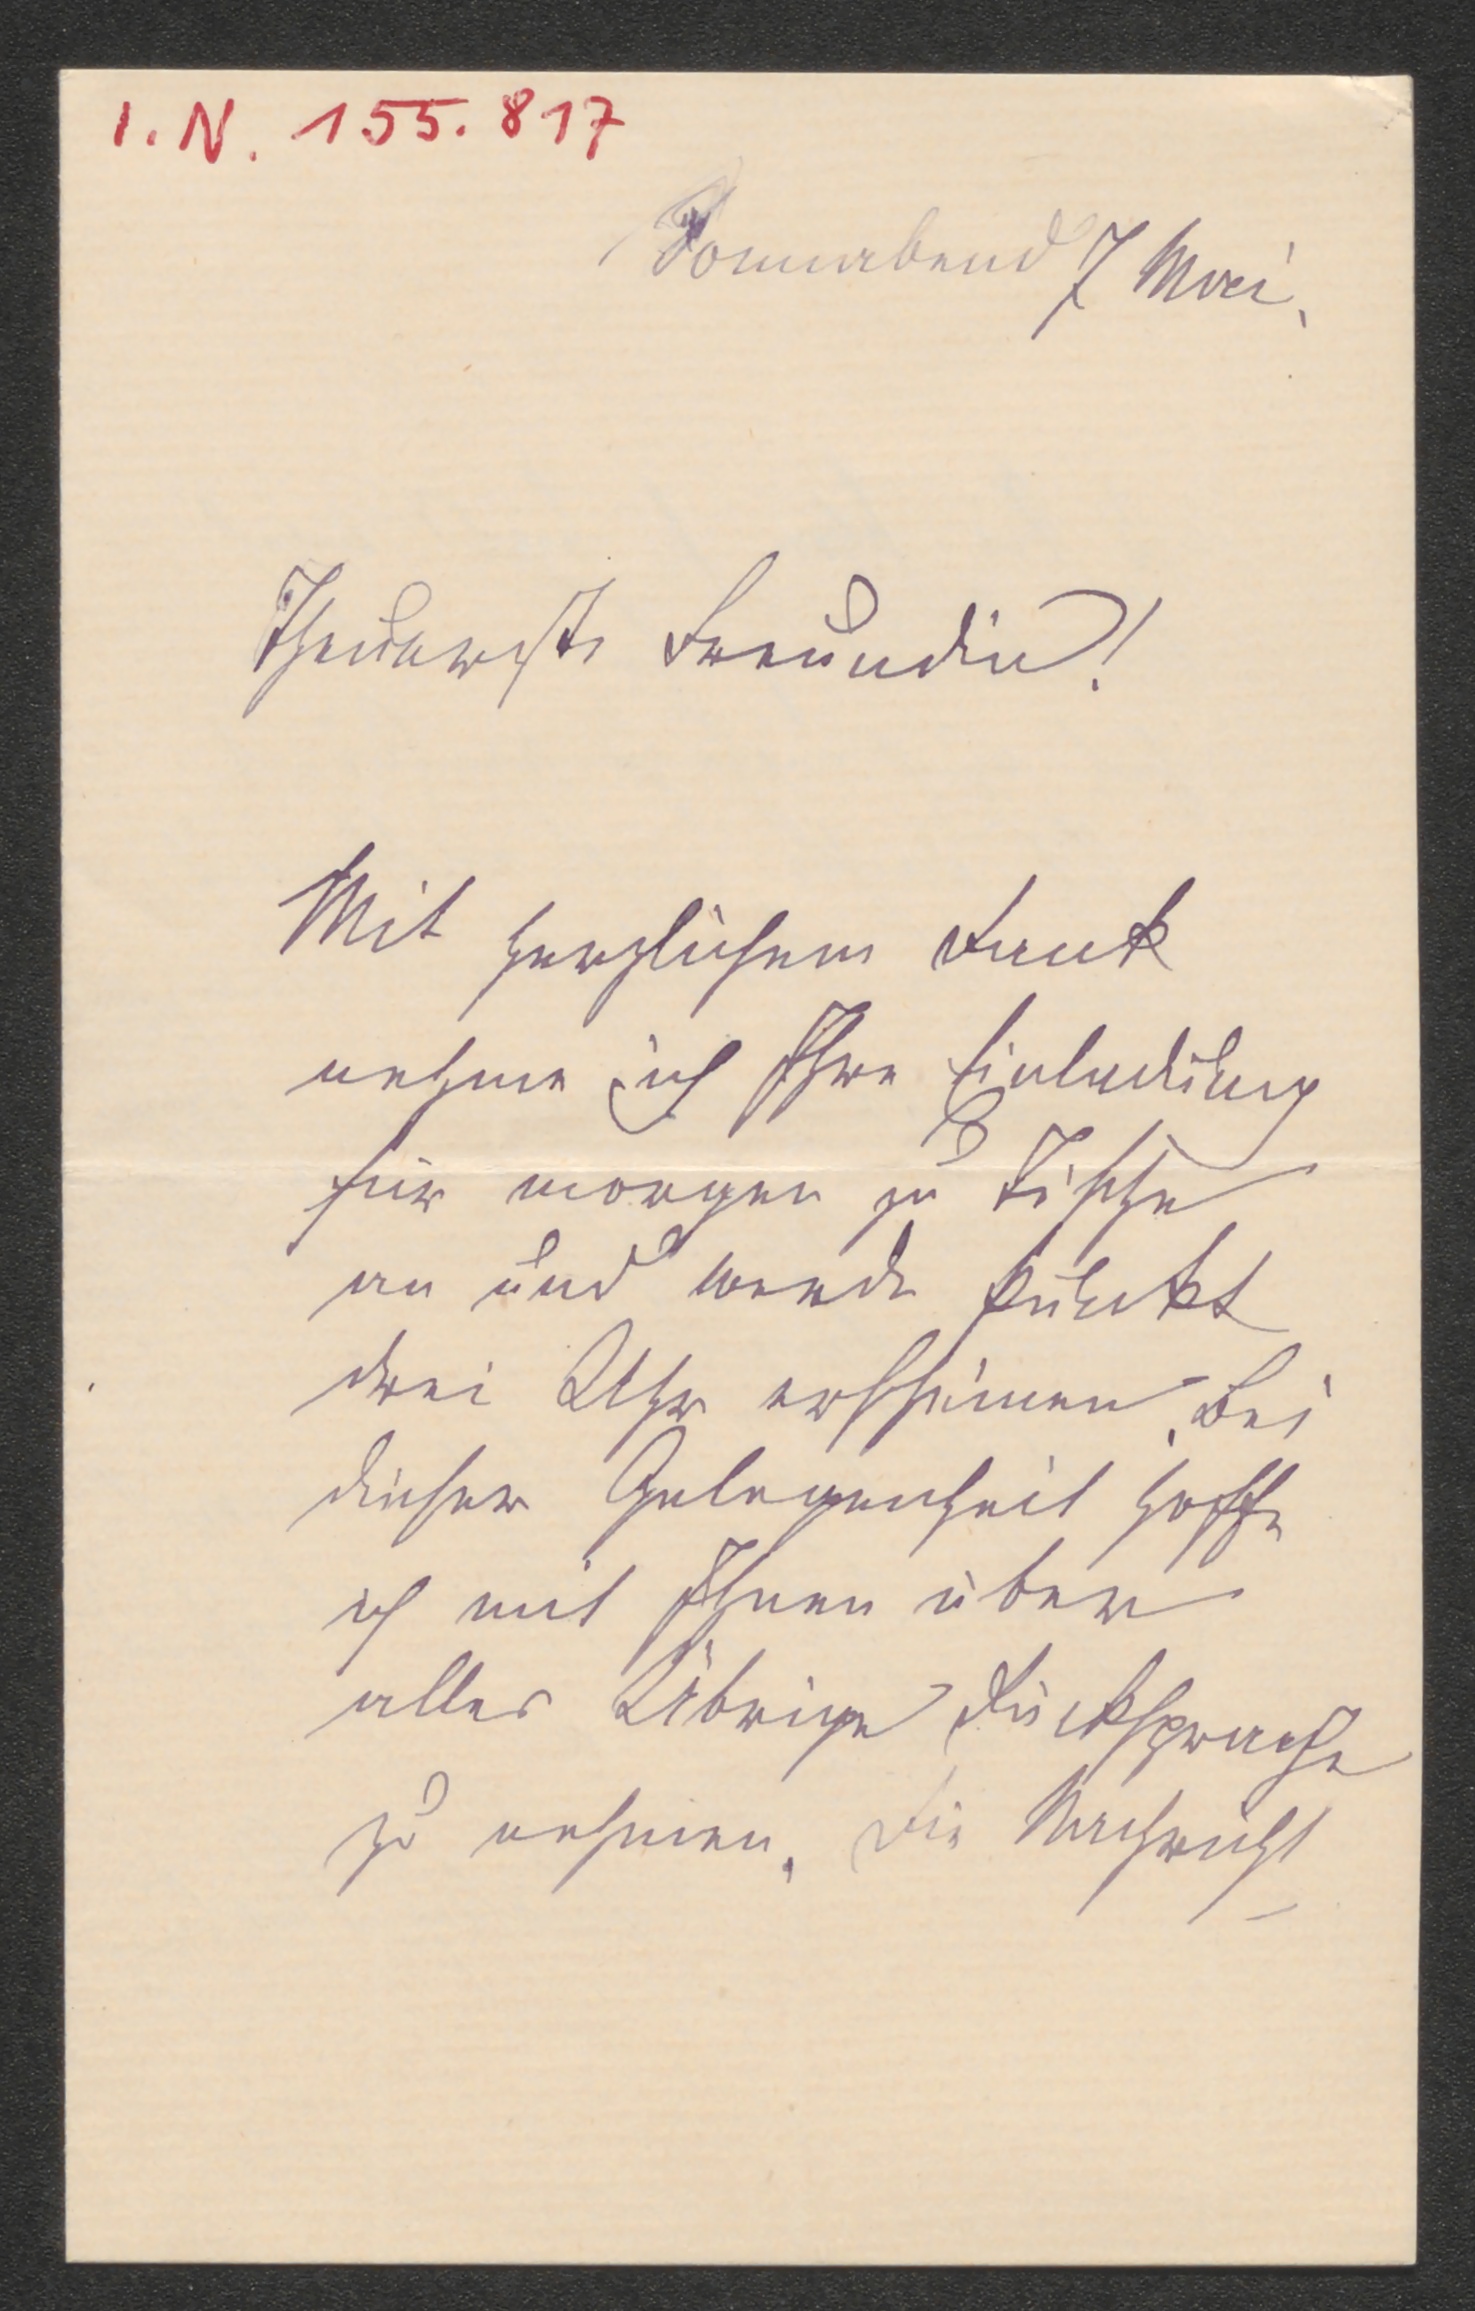 I.N. 155.817
Sonnabend 7 Mai.
Theuerste Freundin!
Mit herzlichem Dank
nehme ich Ihre Einladung
für morgen zu Tische
an und werde punkt
drei Uhr erscheinen. Bei
dieser Gelegenheit hoffe
ich mit Ihnen über
alles Übrige Rücksprache
zu nehmen. Die Nachricht